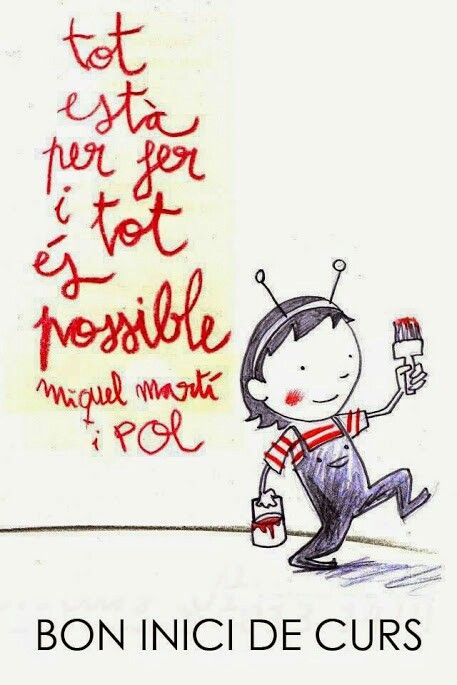 tot
està
per fer
i tot
és
possible
miquel martí
i POL
BON INICI DE CURS